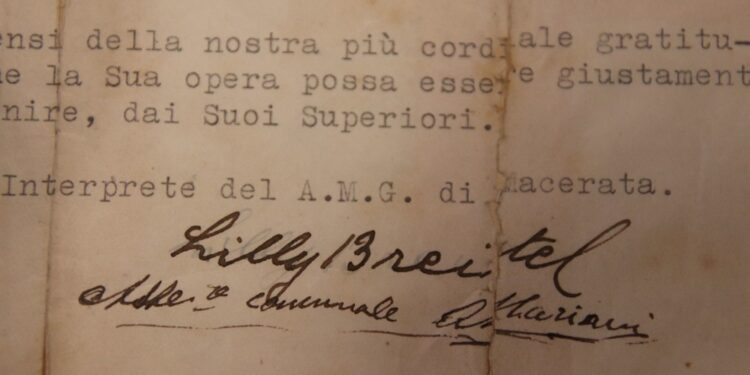 ensi della nostra più cordiale gratitu-
e la Sua opera possa essere giustament
nire, dai Suoi Superiori.
Interprete del A.M.G. di Macerata.
Lilly Breitel
comunale Mariani